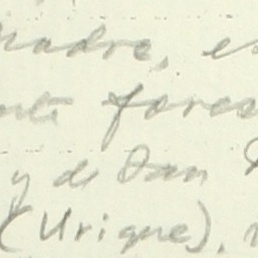 madre, es
nte fores
y de San
(Urique),